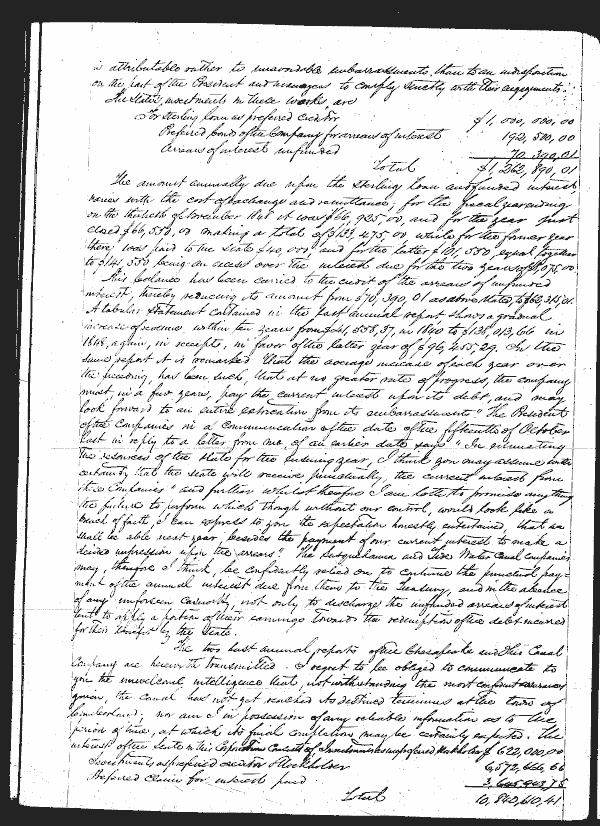 is attributable rather to unavoidable embarrassments, than to an indisposition
on the part of the President and managers to comply strictly with their engagements.
The State's investments in these works, are
For sterling loan as preferred creditor $1,000,000,00
Preferred bonds of the Company for arrears of interest 192,500,00
Arrears of interest unfunded 70,390,01
Total $1,262,890,01
The amount annually due upon the sterling loan and funded interest
varies with the cost of exchange and remittance; for the fiscal year ending
on the thirtieth of November 1848 it was $66,925,00, and for the year just
closed $66,550,00 making a total of $133,475,00 while for the former year
there was paid to the State $40,000, and for the latter $101,550, equal together
to $141,550 being an excess over the interest due for the two years of $8,075,00
This balance has been carried to the credit of the arrears of unfunded
interest, thereby reducing its amount from $70,390,01 as above stated, to $62,315,01.
A tabular statement contained in the last annual report shows a gradual
increase of revenue, within ten years from $41,558,37, in 1840 to $138,013,66 in
1848, again, in receipts, in favor of the latter year of $96,455,29. In the
same report it is remarked "that the average increase of each year over
the preceding, has been such, that at no greater rate of progress, the company
must, in a few years, pay the current interest upon its debt, and may
look forward to an entire extrication from its embarrassments." The President
of the Companies in a communication of the date of the fifteenth of October
last in reply to a letter from me of an earlier date says "In estimating
the resources of the State for the ensuing year, I think you may assume with
certainty that the State will receive punctually, the current interest from
these Companies" and further whilst therefore I am loth to promise anything
the failure to perform which though without our control, would look like a
breach of faith, I can express to you the expectation honestly entertained, that we
shall be able next year, besides the payment of our current interest to make a
decided impression upon the arrears." The Susquehanna and Tide Water Canal Companies
may, therefore I think, be confidently relied on to continue the punctual pay-
ment of the annual interest due from them to the Treasury, and in the absence
of any unforeseen casualty, not only to discharge the unfunded arrears of interest
but to apply a portion of their earnings towards the redemption of the debt incurred
for their benefit by the State.
The two last annual reports of the Chesapeake and Ohio Canal
Company are herewith transmitted. I regret to be obliged to communicate to
you the unwelcome intelligence that, notwithstanding the most confident assurances
given, the canal has not yet reached its destined terminus at the town of
Cumberland; nor am I in possession of any reliable information as to the
period of time, at which its final completion may be certainly expected. The
interest of the State in this Corporation Consists of Investments as unpreferred Stockholder $622,000,00
Investments as preferred creditor & Stockholder 6,572,666,66
Preferred Claim for interest paid 3,645,943,75
Total 10,840,610,41